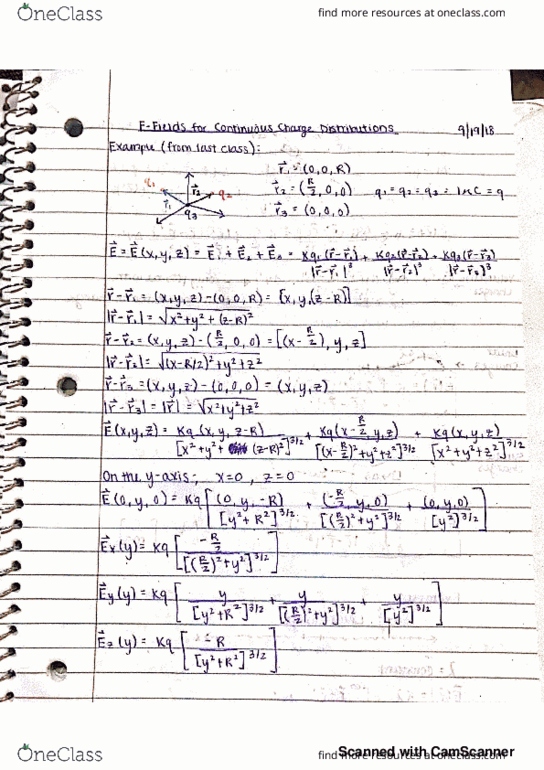 OneClass
find more resources at oneclass.com
E-Fields for Continuous Charge Distributions 9/19/18
Example (from last class):
r⃗₁ = (0,0,R)
q₁ r⃗₂ q₂ r⃗₂ = (R/2, 0, 0) q₁ = q₂ = q₃ = 1nC = q
r⃗₁ q₃ r⃗₃ = (0,0,0)
E⃗ = E⃗(x,y,z) = E⃗₁ + E⃗₂ + E⃗₃ = Kq₁(r⃗-r⃗₁)/|r⃗-r⃗₁|³ + Kq₂(r⃗-r⃗₂)/|r⃗-r⃗₂|³ + Kq₃(r⃗-r⃗₃)/|r⃗-r⃗₃|³
r⃗-r⃗₁ = (x,y,z)-(0,0,R) = [x,y,(z-R)]
|r⃗-r⃗₁| = √x²+y²+(z-R)²
r⃗-r⃗₂ = (x,y,z)-(R/2,0,0) = [(x-R/2), y, z]
|r⃗-r⃗₂| = √(x-R/2)²+y²+z²
r⃗-r⃗₃ = (x,y,z)-(0,0,0) = (x,y,z)
|r⃗-r⃗₃| = |r⃗| = √x²+y²+z²
E⃗(x,y,z) = Kq(x,y,z-R)/[x²+y²+(z-R)²]^3/2 + Kq(x-R/2,y,z)/[(x-R/2)²+y²+z²]^3/2 + Kq(x,y,z)/[x²+y²+z²]^3/2
On the y-axis; x=0, z=0
E⃗(0,y,0) = Kq[(0,y,-R)/[y²+R²]^3/2 + (-R/2,y,0)/[(R/2)²+y²]^3/2 + (0,y,0)/[y²]^3/2]
E⃗x(y) = Kq[-R/2/[(R/2)²+y²]^3/2]
E⃗y(y) = Kq[y/[y²+R²]^3/2 + y/[(R/2)²+y²]^3/2 + y/[y²]^3/2]
E⃗z(y) = Kq[-R/[y²+R²]^3/2]
Scanned with CamScanner
OneClass
find more resources at oneclass.com